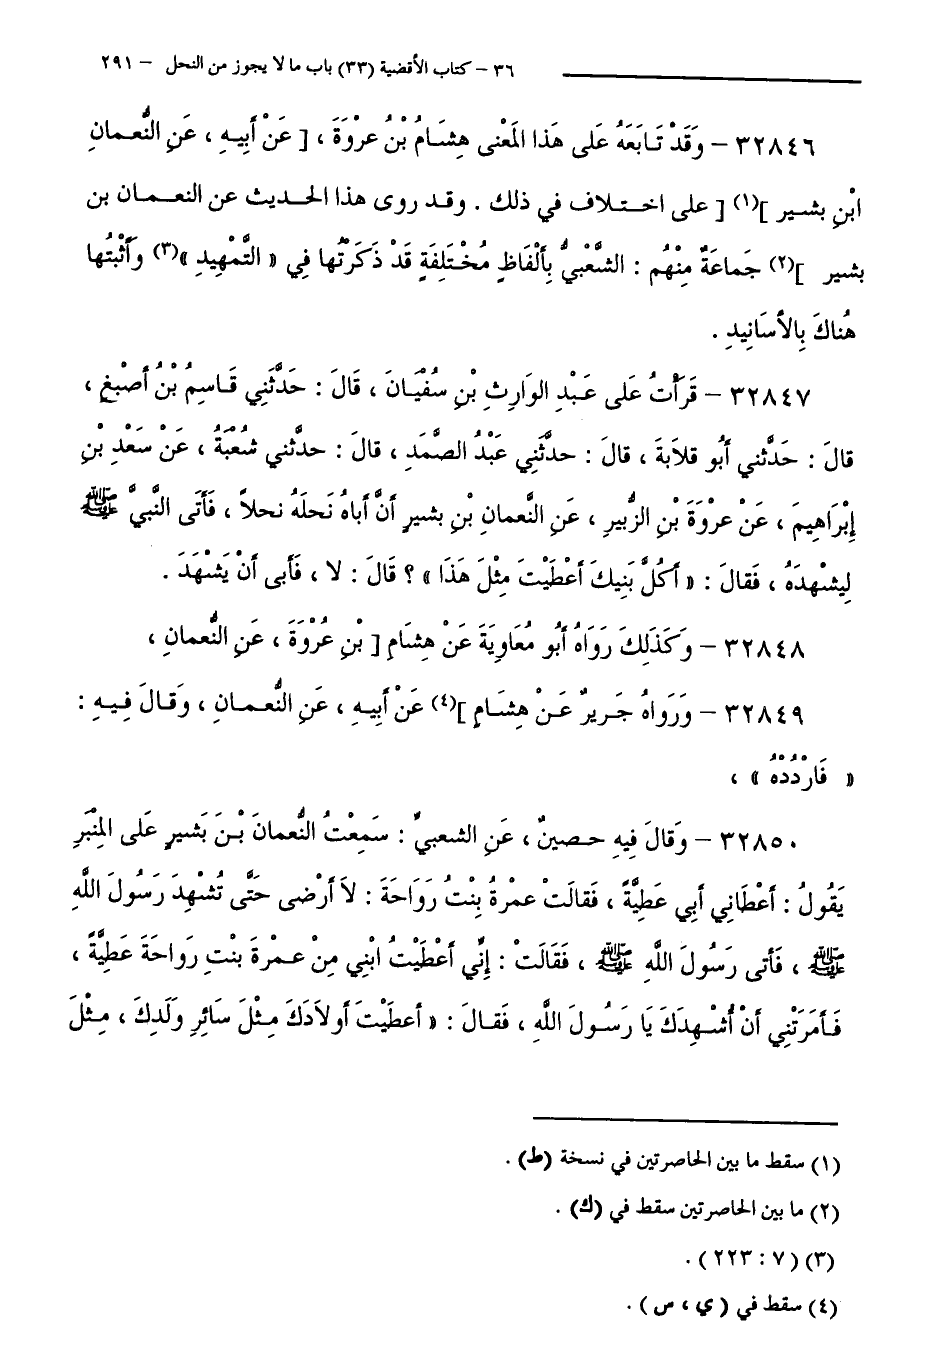 ٣٦ – كتاب الأقضية (٣٣) باب ما لا يجوز من النحل – ٢٩١
٣٢٨٤٦ – وَقَدْ تَابَعَهُ عَلى هَذا المَعْنى هِشَامُ بْنُ عروْةَ ، [ عَنْ أَبِيهِ ، عَنِ النُّعمانِ
ابْنِ بشيرٍ ](١) [ على اختلاف في ذلك . وقد روى هذا الحديث عن النعمان بن
بشير ](٢) جَماعَةٌ مِنْهُم : الشَّعْبيُّ بِأَلْفَاظٍ مُخْتَلِفَةٍ قَدْ ذَكَرتُها فِي « التَّمْهِيدِ »(٣) وَأَثْبتُها
هُناكَ بِالأَسَانِيدِ .
٣٢٨٤٧ – قَرَأْتُ عَلى عَبْدِ الوَارِثِ بْنِ سفْيَانَ ، قَالَ : حَدَّثَنِي قَاسِمُ بْنُ أَصْبغٍ ،
قالَ : حَدَّثني أَبو قلابَةَ ، قالَ : حدَّثَنِي عَبْدُ الصَّمَدِ ، قالَ : حدَّثني شُعْبَةُ ، عَنْ سَعْدِ بْنِ
إِبْرَاهِيمَ ، عَنْ عرْوَةَ بْنِ الزُّبيرِ ، عَنِ النَّعمانِ بْنِ بشيرٍ أَنَّ أَباهُ نَحلَهُ نحلاً ، فَأَتَى النَّبيَّ ﷺ
لِيشْهِدَهُ ، فَقالَ : « أَكُلَّ بَنِيكَ أَعْطَيْتَ مِثْلَ هَذَا » ؟ قَالَ : لا ، فَأَبى أَنْ يَشْهَدَ .
٣٢٨٤٨ – وَكَذَلِكَ رَوَاهُ أَبُو مُعَاوِيَةَ عَنْ هِشَامِ [ بْنِ عُرْوَةَ ، عَنِ النُّعمانِ ،
٣٢٨٤٩ – وَرَواهُ جَرِيرٌ عَنْ هِشَامٍ ](٤) عَنْ أَبِيهِ ، عَنِ النُّعمانِ ، وَقالَ فِيهِ :
« فَارْدُدْهُ » ،
٣٢٨٥٠ – وَقَالَ فِيهِ حصينٌ ، عَنِ الشعبيِّ : سَمِعْتُ النُّعمانَ بْنَ بَشيرٍ عَلى المِنْبَرِ
يَقُولُ : أَعْطَانِي أَبِي عَطِيَّةً ، فَقَالَتْ عمْرةُ بِنْتُ رَوَاحَةَ : لاَ أَرْضى حَتَّى تُشْهِدَ رَسُولَ اللَّهِ
ﷺ ، فَأتى رَسُولَ اللَّهِ ﷺ ، فَقَالَتْ : إِنِّي أَعْطَيْتُ ابْنِي مِنْ عمْرةَ بنْتِ رواحَةَ عَطِيَّةً ،
فَأَمَرَتْنِي أَنْ أُشْهِدَكَ يَا رَسُولَ اللَّهِ ، فَقالَ : « أَعطَيْتَ أَولاَدَكَ مِثْلَ سَائِرِ وَلَدِكَ ، مِثْلَ
(١) سقط ما بين الحاصرتين في نسخة (ط) .
(٢) ما بين الحاصرتين سقط في (ك) .
(٣) ( ٧ : ٢٢٣ ) .
(٤) سقط في ( ي ، س ) .